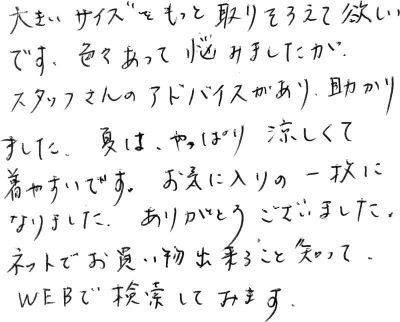 大きいサイズをもっと取りそろえて欲しい
です、色々あって悩みましたが、
スタッフさんのアドバイスがあり、助かり
ました、夏は、やっぱり涼しくて
着やすいです。お気に入りの一枚に
なりました、ありがとうございました。
ネットでお買い物出来ること知って、
WEBで検索してみます、